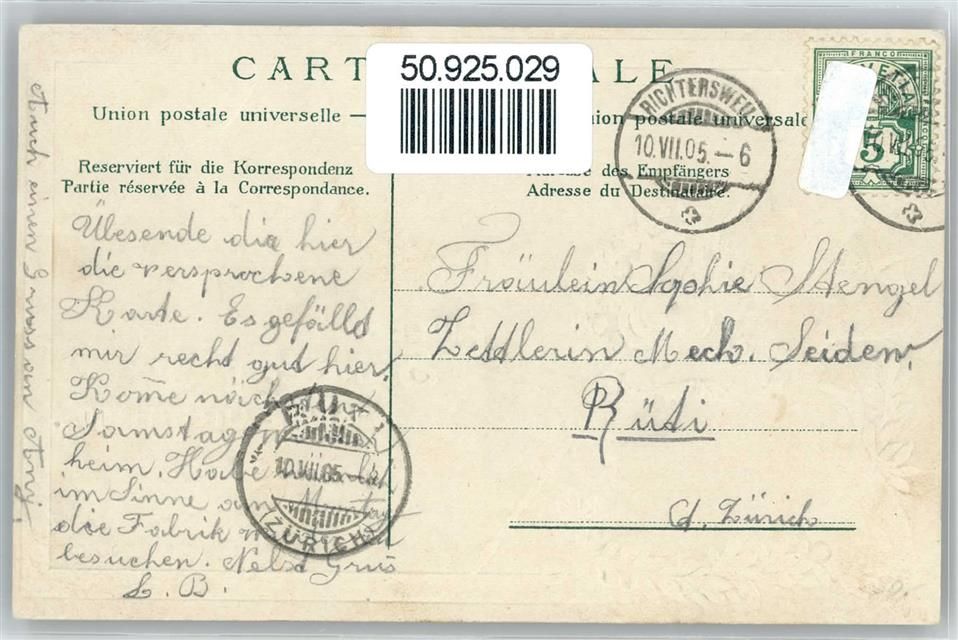 CART ALE
50.925.029
Union postale universelle —
ion postale universale
Reserviert für die Korrespondenz
Partie réservée à la Correspondance.
des Empfängers
Adresse du Destinataire.
FRANCO
5
RICHTERSWEIL
10.VII.05.–6
Übesende dia hier
die versprochene
Karte. Es gefälld
mir recht gud hier.
Kom̅e näch
Samstag
heim. Habe
im Sinne am Montag
die Fabrik
besuchen. Nebst Grus
L. B.
Auch einen Gruss von
RÜTI
10.VII.05
(ZÜRICH)
Fräulein Sophie Stengel
Zettlerin Mech. Seidenw.
Rüti
Ct. Zürich